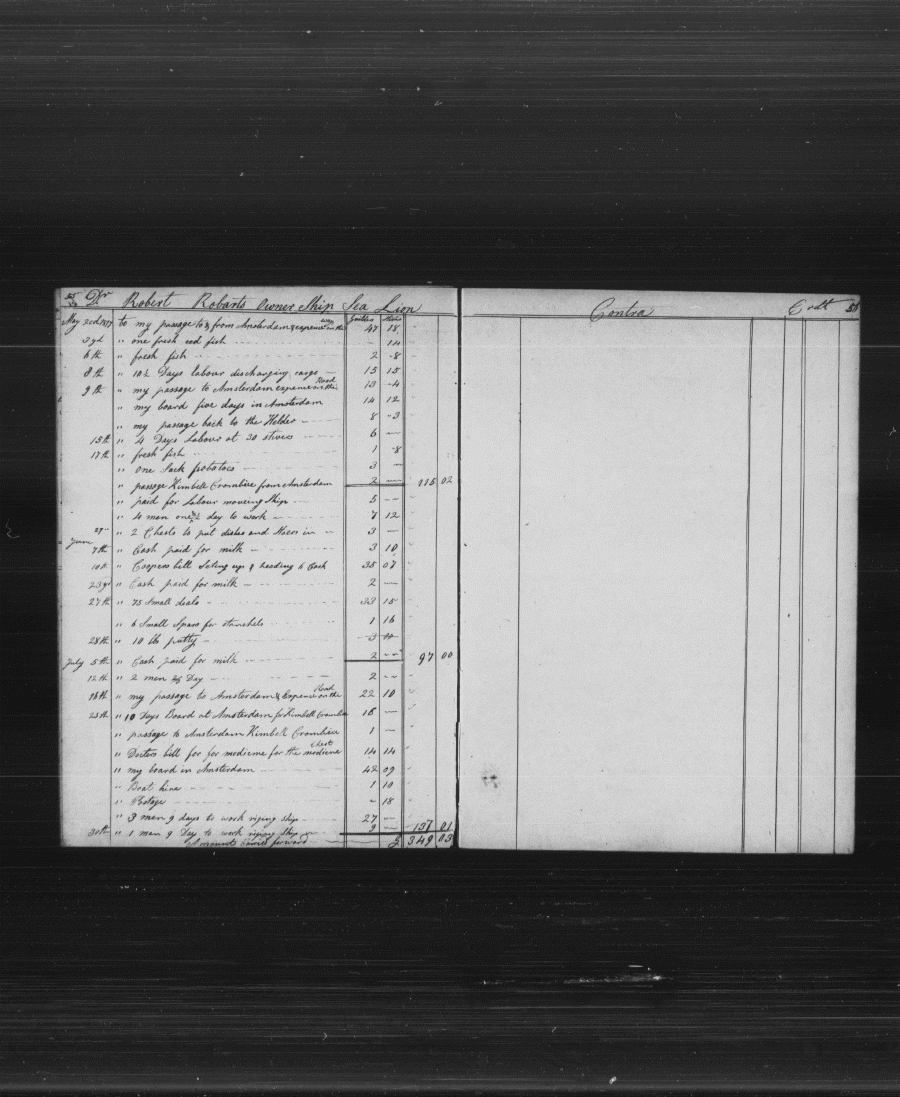 Dr Robert Robarts Owner Ship Sea Lion
Guilders Stivers
May 2cd to my passage to & from Amsterdam & expence on the way 47 18
3rd " one fresh cod fish 14
6th " fresh fish 2 - 8
8th " 10½ Days labour discharging cargo 15 15
9th " my passage to Amsterdam expence on the Road 13 - 4
" my board five days in Amsterdam 14 12
" my passage back to the Helder 8 - 3
15th " 4 Days Labour at 30 stivers 6 —
17th " fresh fish 1 - 8
" one Sack potatoes 3 —
" passage Kimbell from Amsterdam 2 — 115 02
" paid for Labour moveing Ship 5 —
" 4 men one ½ day to work 7 12
29 " 2 Chests to put dishes and in 3 —
June 7th " Cash paid for milk 3 10
10th " Coopers bill Seting up & heading 6 Cask 35 07
23rd " Cash paid for milk 2 —
27th " 75 Small deals 33 15
" 6 Small Spars for 1 16
28th " 10 lb putty 3
July 5th " Cash paid for milk 2 — 97 00
12th " 2 men Day 2 —
16th " my passage to Amsterdam & Expence on the Road 22 10
25th " 10 Days Board at Amsterdam for Kimbell
" passage to Amsterdam Kimbell 1 —
" Docters bill for for medicine for the medicine Chest 14 14
" my board in Amsterdam 42 09
" Boat hire 1 10
" Postage - 18
" 3 men 9 days to work riging ship 27 —
30th " 1 man 9 Day to work riging Ship 9 — 137 01
Amount Carried forward 349 03
Contra Cr